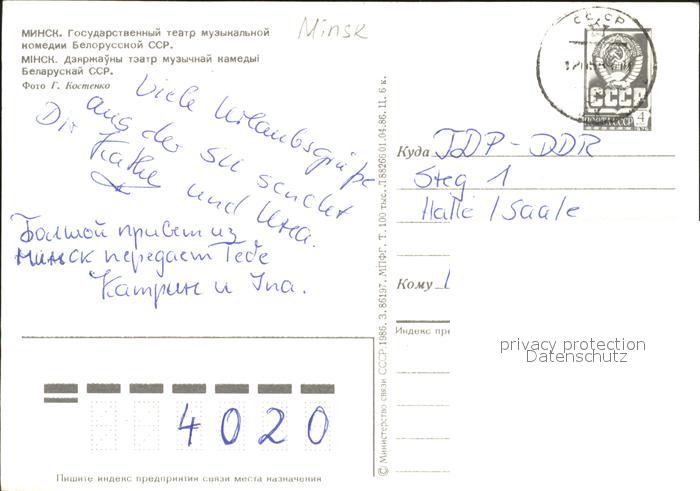 МИНСК. Государственный театр музыкальной
комедии Белорусской ССР.
МІНСК. Дзяржаўны тэатр музычнай камедыі
Беларускай ССР.
Фото Г. Костенко
Minsk
СССР
СССР
ПОЧТА СССР 4
Viele Urlaubsgrüße
aus der SU sendet
Dir Kathe
und Ина.
Большой привет из
Минск передает Тебе
Катрин и Ina.
Куда JDP-DDR
Steg 1
Halle/Saale
Кому
Индекс пре
privacy protection
Datenschutz
© Министерство связи СССР. 1986. З. 86197. МПФГ. Т. 100 тыс. 01.04.86. Ц. 6 к.
4020
Пишите индекс предприятия связи места назначения